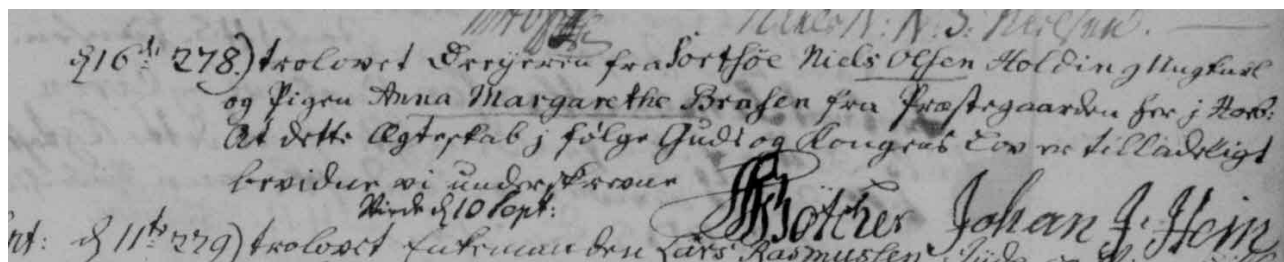 Niels N: N: S: Nielsen.
d 16de 278.) trolovet Dreyeren fra Sorthøe Niels Olsen Holding Ungkarl
og Pigen Anna Margarethe Brasen fra Præstegaarden her j Horb:
At dette Ægteskab j følge Guds og Kongens Lov er tilladeligt
bevidne vi underskrevne
Viede d 10 Sept:
Bötcher Johan J. Hein
d 11te 279) trolovet Enkemanden Lars Rasmussen